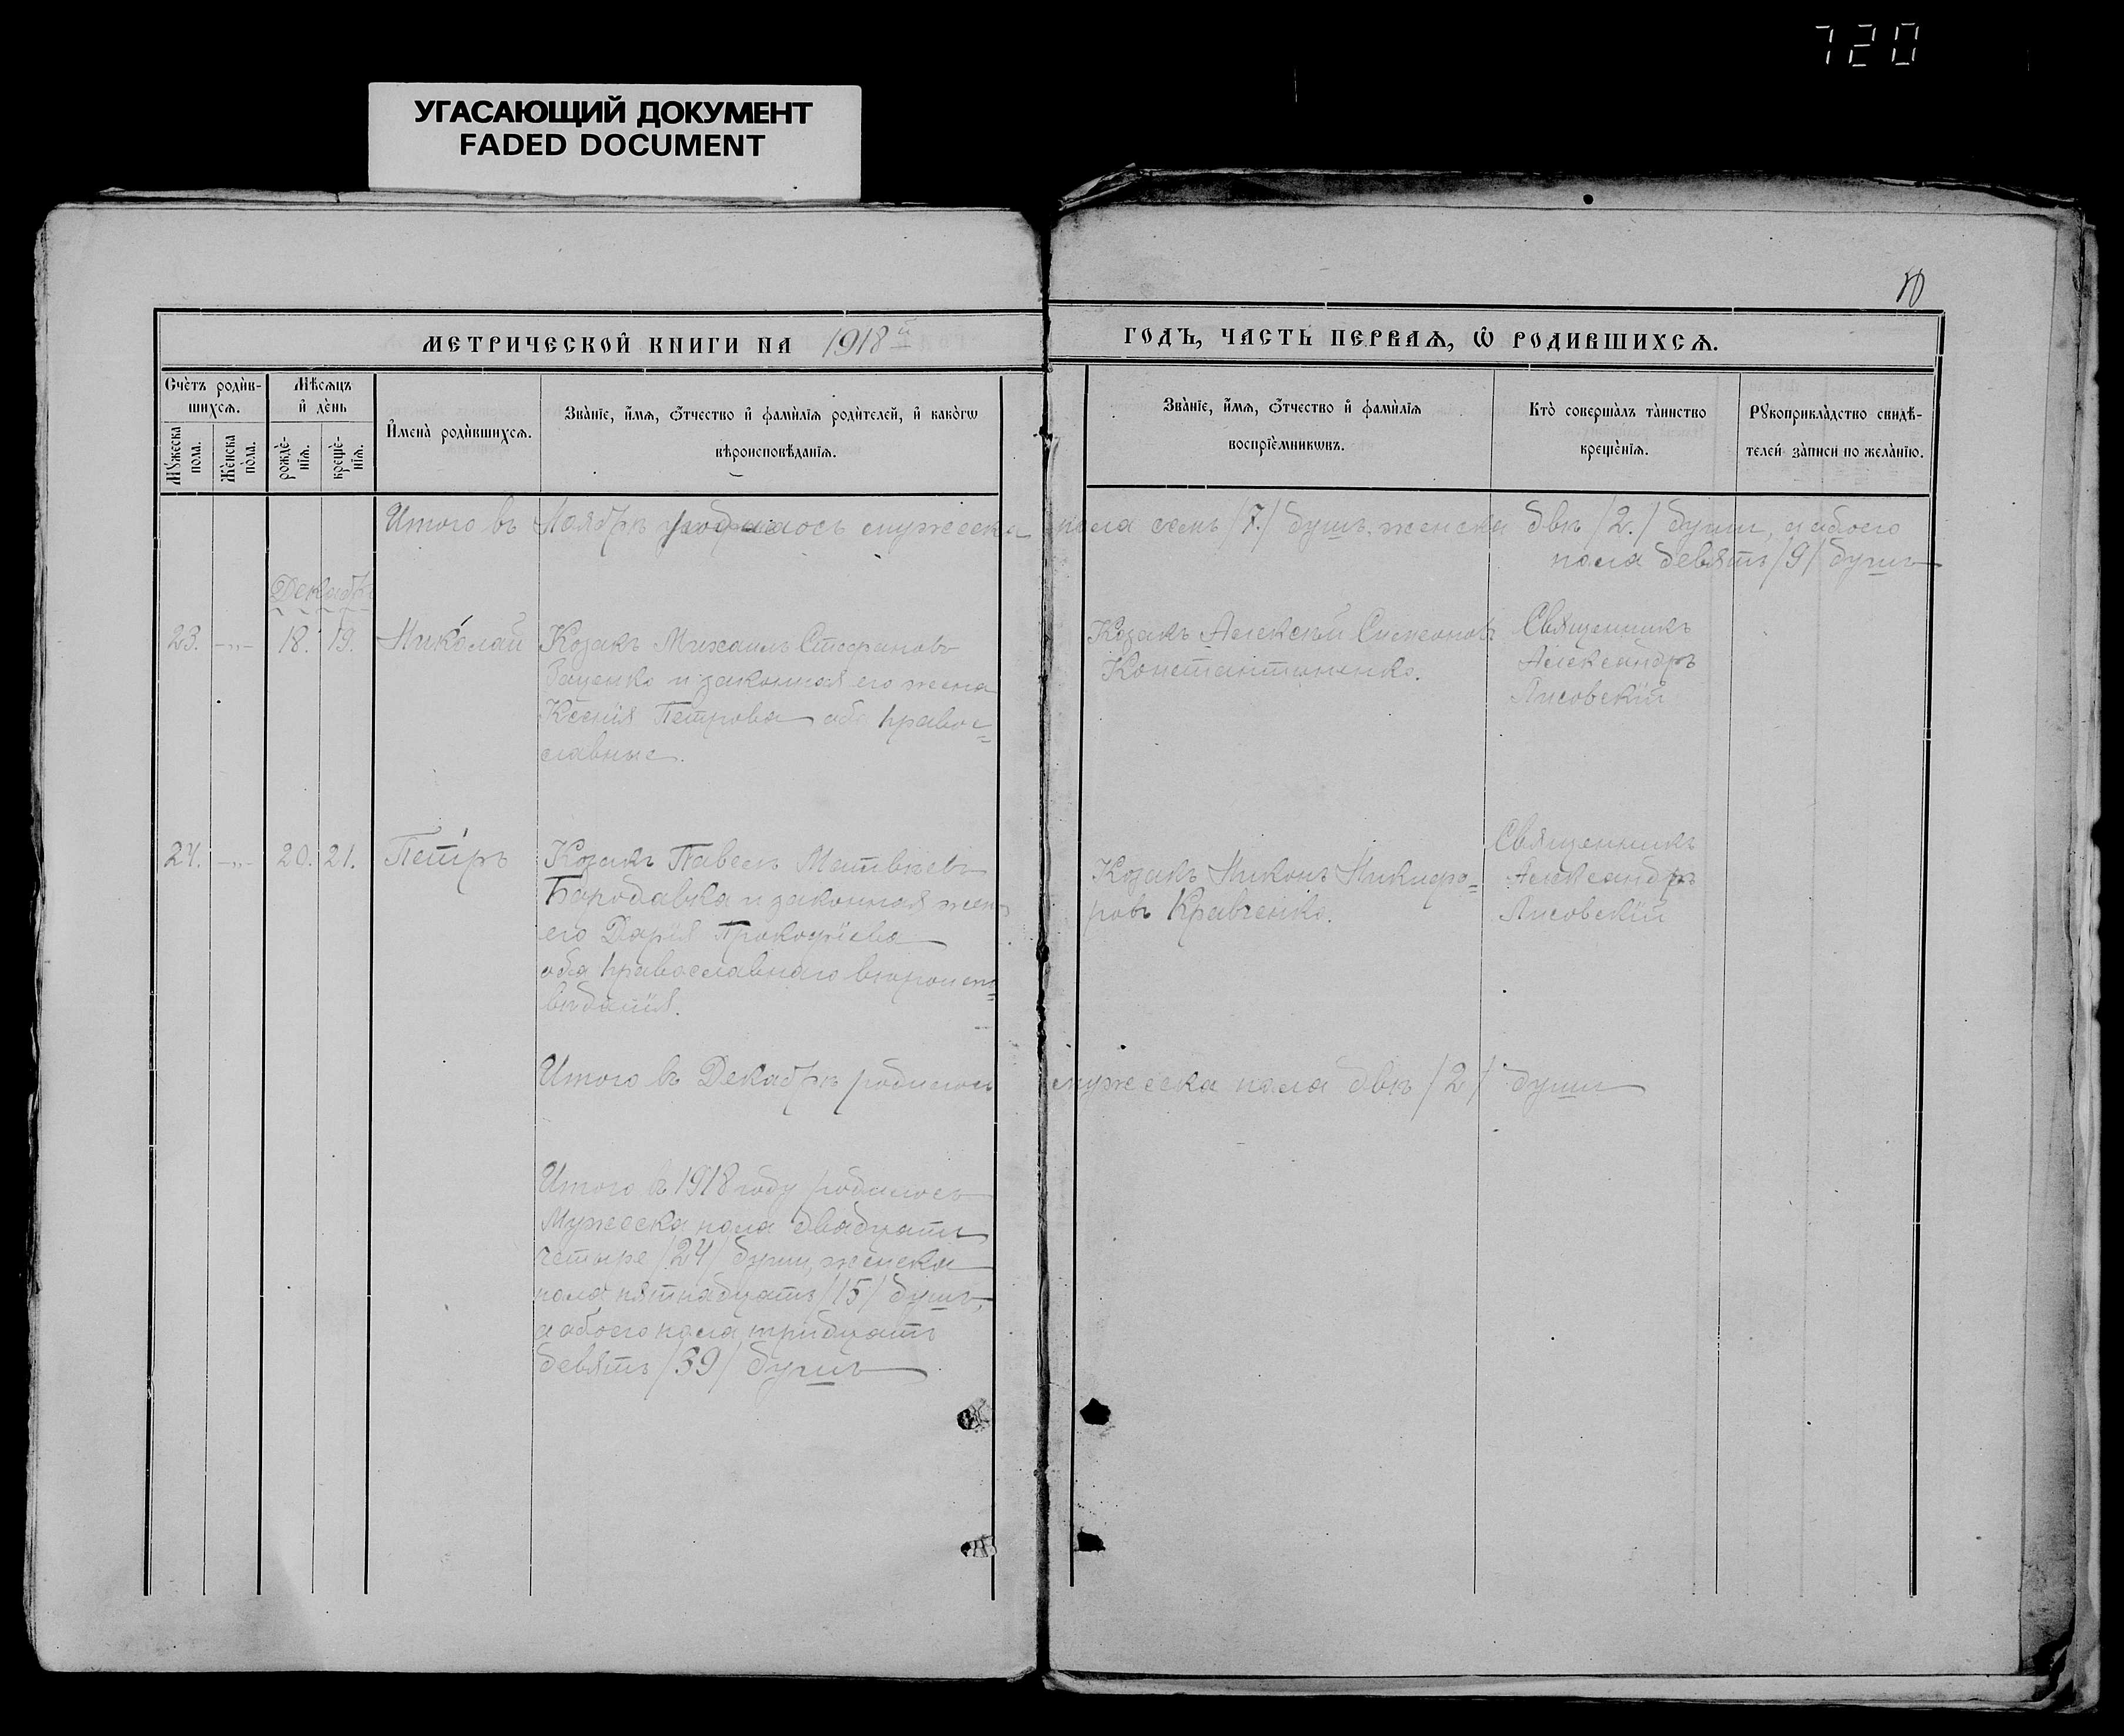 720
УГАСАЮЩИЙ ДОКУМЕНТ
FADED DOCUMENT
МЕТРИЧЕСКОЙ КНИГИ НА 1918 й
ГОДЪ, ЧАСТЬ ПЕРВАѦ, Ѽ РОДИВШИХСѦ.
Счетъ родив-
шихсѧ.
Мѣсѧцъ
и день
Мꙋжеска пола.
Женска пола.
рожде-
нїѧ.
креще-
нїѧ.
Имена родившихсѧ.
Званїе, имѧ, ѿчество и фамилїѧ родителей, и какогѡ
вѣроисповѣданїѧ.
Званїе, имѧ, ѿчество и фамилїѧ
воспрїемникѡвъ.
Кто совершалъ таинство
крещенїѧ.
Рꙋкоприкладство свидѣ-
телей записи по желанїю.
Итого въ Ноябрѣ родилось мужеска пола семь /7/ душъ, женска двѣ /2./ души, а обоего
пола девять /9/ душъ
Декабрь
23. -„- 18. 19. Николай
Козакъ Михаилъ Стефановъ
и законная его жена
Ксенія Петрова оба право-
славные.
Козакъ Алексѣй Симеоновъ
Константиненко.
Священникъ
Александръ
Лисовскій
24. -„- 20. 21. Петръ
Козакъ Павелъ Матвѣевъ
Бородавка и законная жена
его Дарія Прокофіева
оба православнаго вѣроиспо-
вѣданія.
Козакъ Никонъ Никифо-
ровъ Кравченко.
Священникъ
Александръ
Лисовскій
Итого въ Декабрѣ родилось мужеска пола двѣ /2/ души
Итого въ 1918 году родилось
Мужеска пола двадцать
четыре /24/ души, женска
пола пятнадцать /15/ душъ,
а обоего пола тридцать
девять /39/ душъ